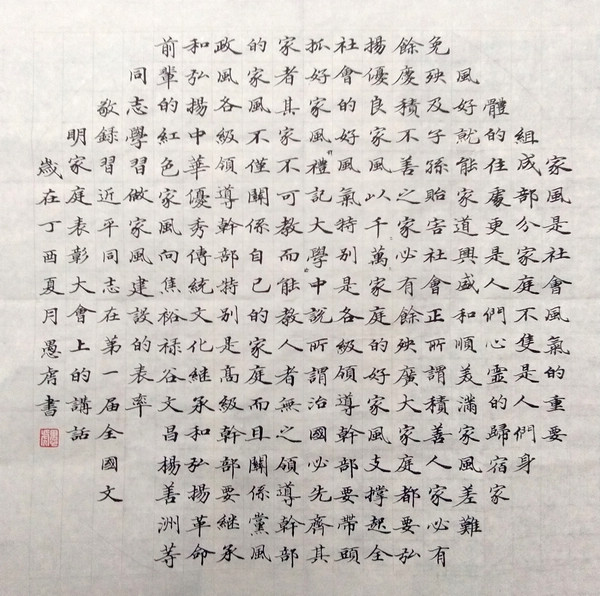 家風是社會風氣的重要
組成部分家庭不隻是人們身
體的住處更是人們心靈的歸宿家
風好就能家道興盛和順美滿家風差難
免殃及子孫貽害社會正所謂積善人家必有
餘慶積不善之家必有餘殃廣大家庭都要弘
揚優良家風以千萬家庭的好家風支撐起全
社會的好風氣特別是各級領導幹部要帶頭
抓好家風"禮記大學"中說所謂治國必先齊其
家者其家不可教而能教人者無之領導幹部
的家風不僅關係自己的家庭而且關係黨風
政風各級領導幹部特別是高級幹部要繼承
和弘揚中華優秀傳統文化繼承和弘揚革命
前輩的紅色家風向焦裕祿谷文昌楊善洲等
同志學習做家風建設的表率
敬錄習近平同志在第一届全國文
明家庭表彰大會上的講話
歲在丁酉夏月愚書